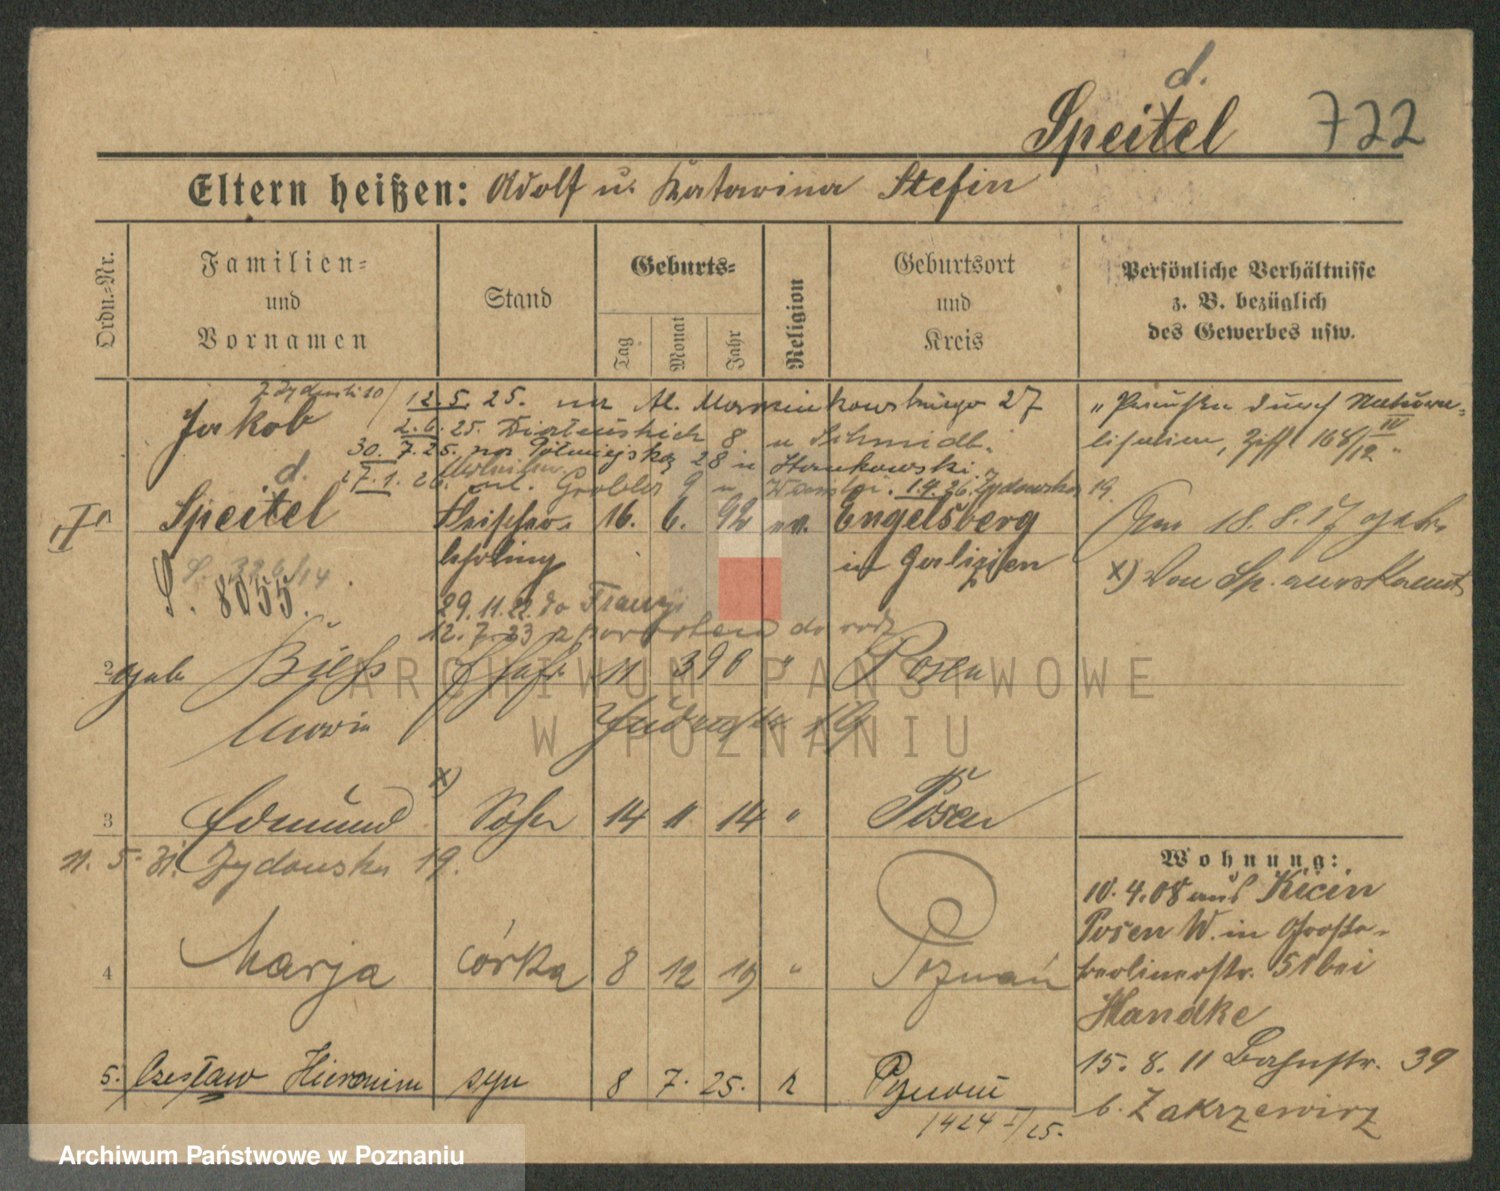 d.
Speitel 722
Eltern heißen: Adolf u. Katarina Stefin
Ordn.-Nr.
Familien-
und
Vornamen
Stand
Geburts-
Tag
Monat
Jahr
Religion
Geburtsort
und
Kreis
Persönliche Verhältnisse
z. B. bezüglich
des Gewerbes usw.
12.5. 25. na Al. Marcinkowskiego 27
Jakob
2.6.25. 8 u Schmidt
30.7.25. na Półwiejską 28 u Stankowski
27.1.26. ul. Grobla 9 u 1.4.26. Żydowska 19.
"Preußen durch Natura-
lisation, Ziff 168/12 IV"
d.
Speitel Fleischer- 16. 6. 92 ev. Engelsberg
lehrling in Galizien
Am 18.8.17
x) Von Sp. anerkannt
S. 326/14
S. 8055.
29.11.22. do Francji
12.7.23 z powrotem do
2 geb. Ehefr 11 3 90 " Posen
Maria 19
x)
3 Edmund Sohn 14 11 14 " Posen
11. 5. 31. Żydowska 19.
4 Marja córka 8 12 19 " Poznań
5. Czesław Hieronim syn 8 7. 25. r Poznań
1424 I/25.
Wohnung:
10.4.08 aus Kicin
Posen W. in Große-
berlinerstr. 51 bei
Handke
15. 8. 11 Bahnstr. 39
b. Zakrzewicz
ARCHIWUM PAŃSTWOWE
W POZNANIU
Archiwum Państwowe w Poznaniu